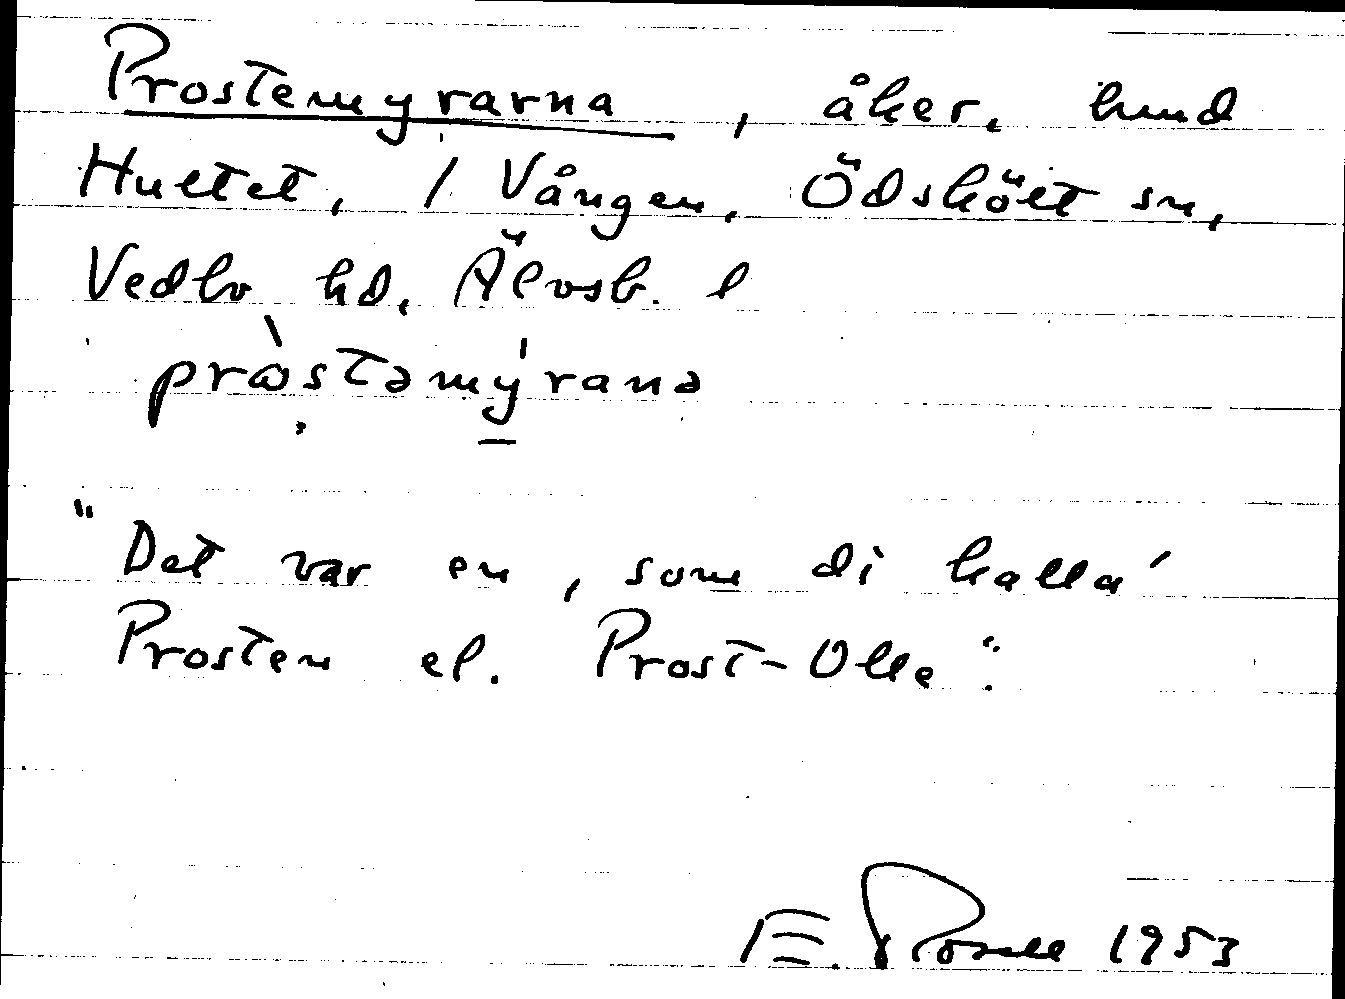 Prostemyrarna, åker, hmd
Hultet, 1 Vången, Ödskölt sn,
Vedbo hd, Älvsb. l
pròstəmýranə
"Det var en, som di kalla'
Prosten el. Prost-Olle".
E. 1953